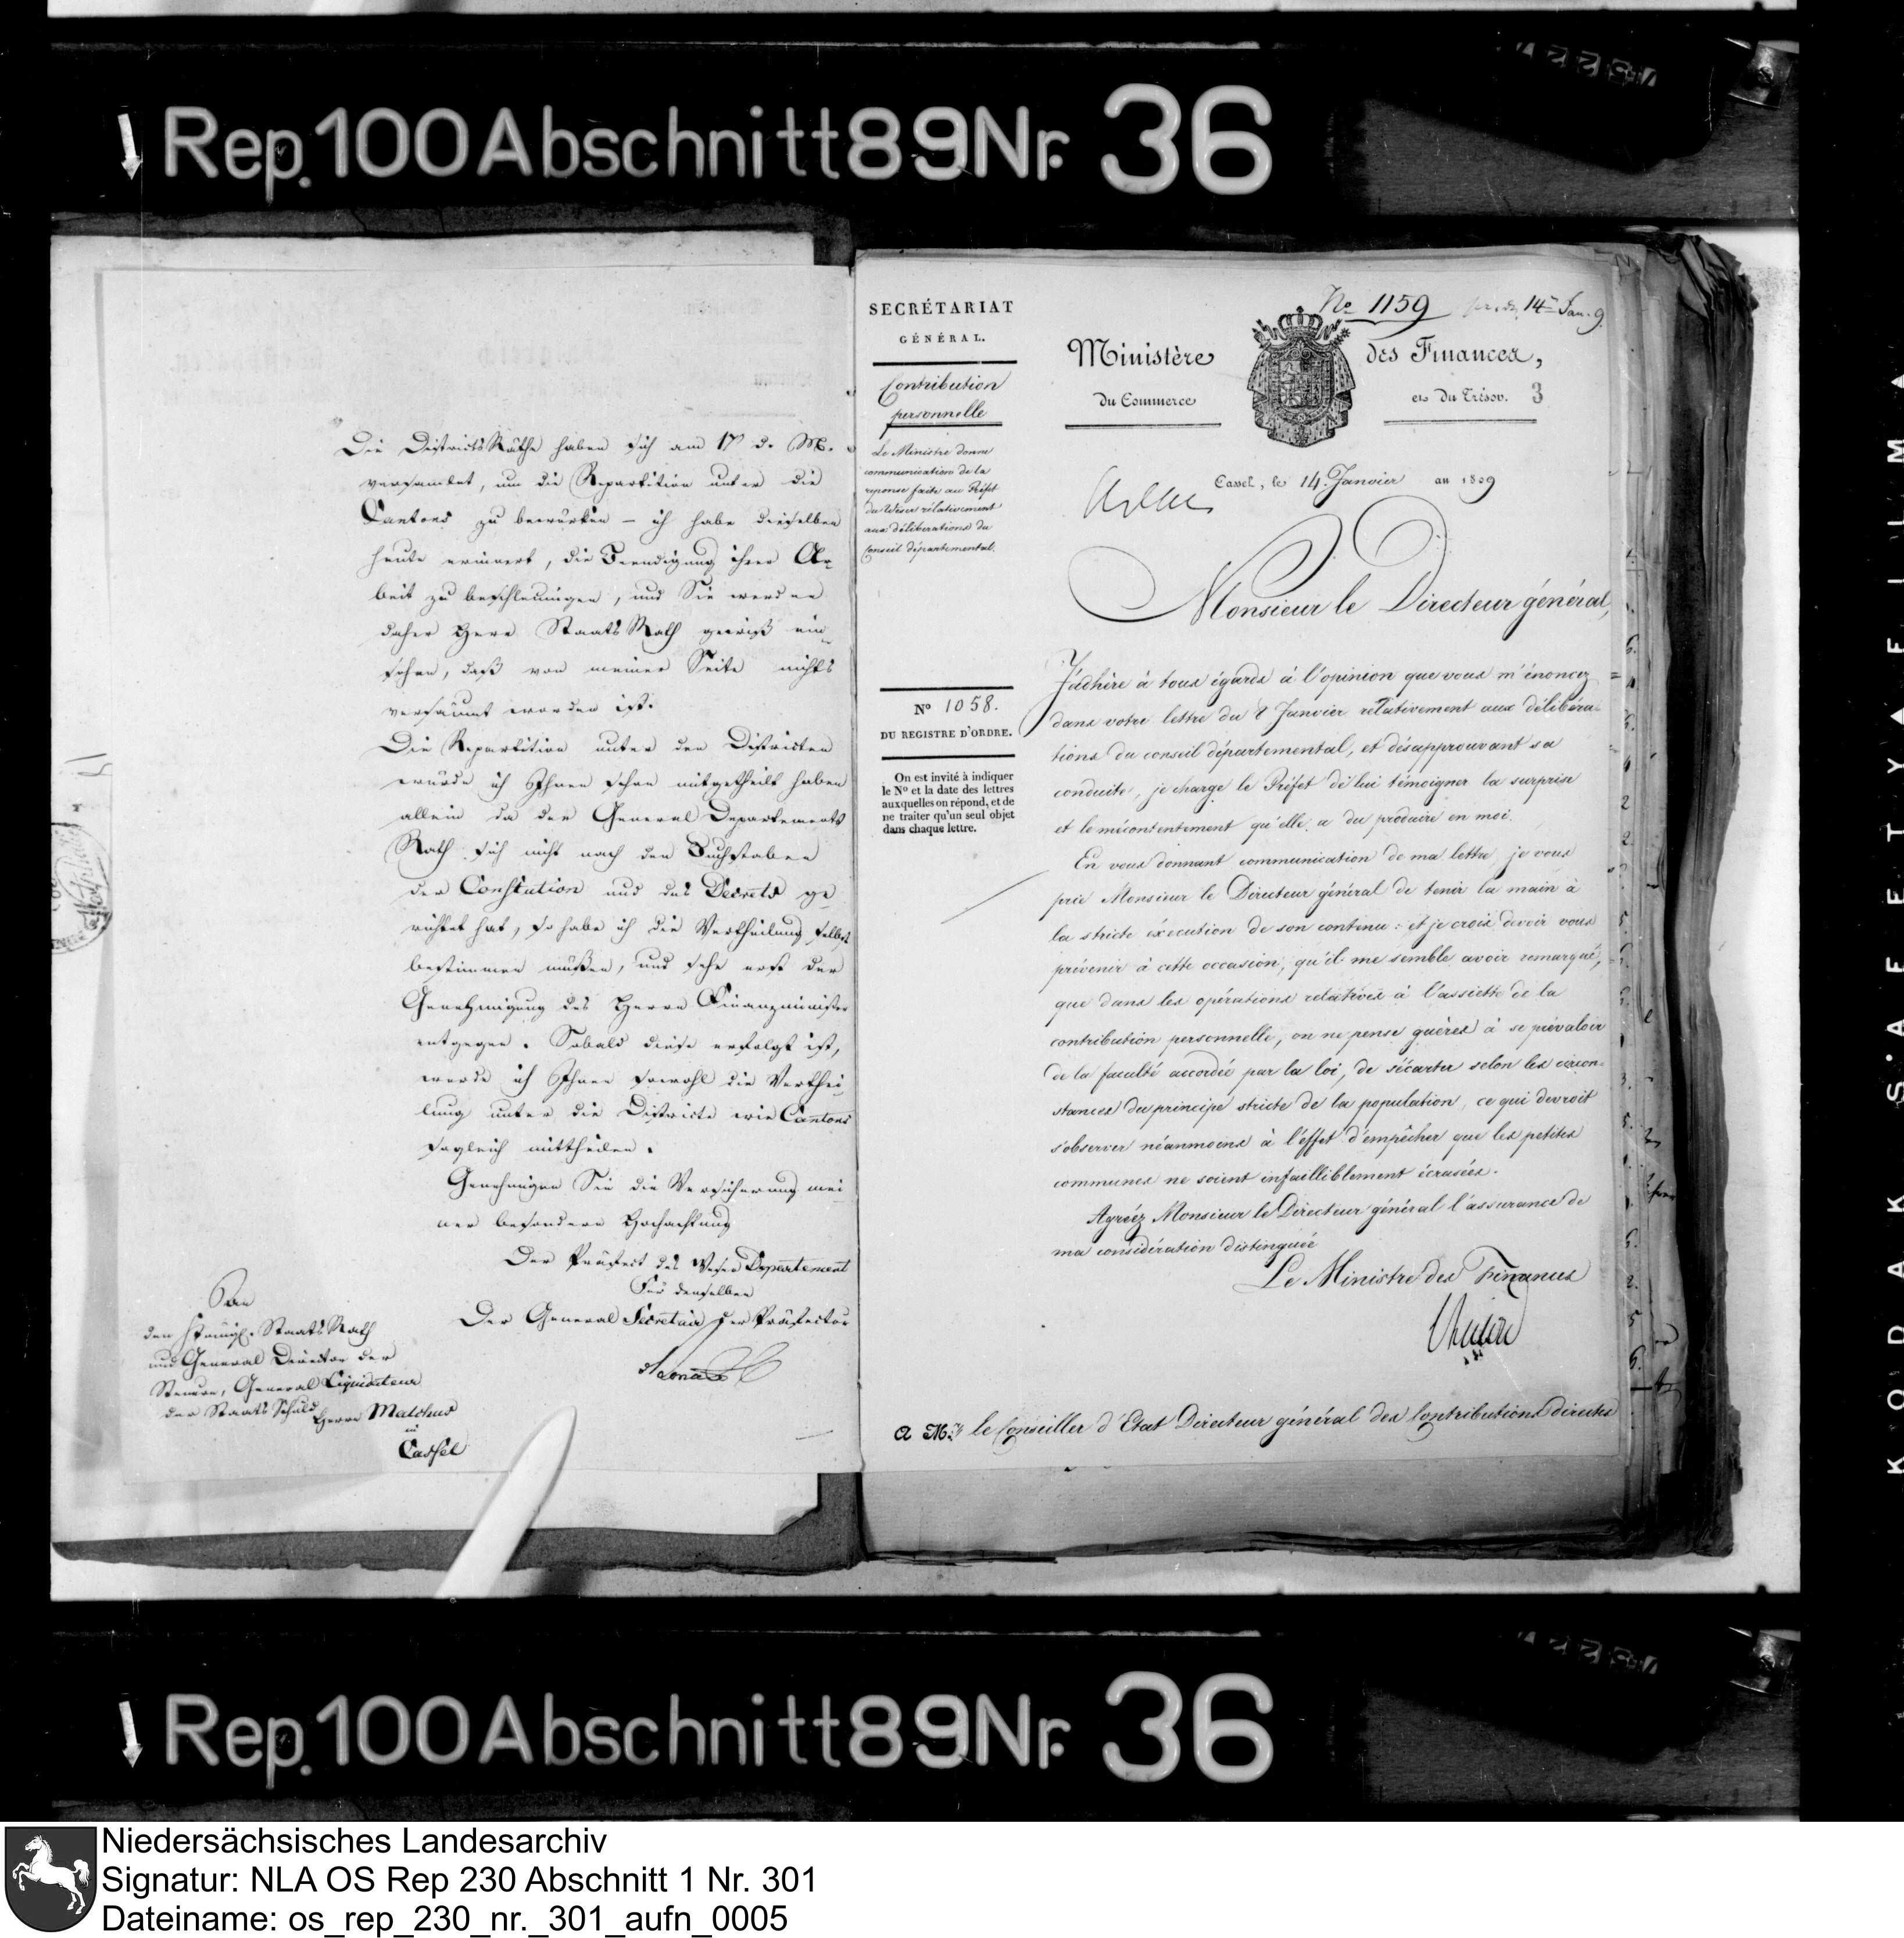 Rep. 100 Abschnitt 89 Nr. 36
Die DistrictsRäthe haben sich am 17 d. M.
versamlet, um die Repartition unter die
Cantons zu bewürken – ich habe dieselben
heute erinnert, die Beendigung ihrer Ar-
beit zu beschleunigen, und Sie werden
daher Herr StaatsRath gewiß ein-
sehen, daß von meiner Seite nichts
versäumt worden ist.
Die Repartition unter den Districten
würde ich Ihnen schon mitgetheilt haben
allein da der General Departements
Rath sich nicht nach den Buchstaben
der Constitution und des Decrets ge
richtet hat, so habe ich die Vertheilung selbst
bestimmen müßen, und sehe erst der
Genehmigung des Herrn Finanzminister
entgegen. Sobald diese erfolgt ist,
werde ich Ihnen sowohl die Verthei
lung unter die Districte wie Cantons
sogleich mittheilen.
Genehmigen Sie die Versicherung mei
ner besondern Hochachtung
Der Präfect des Weser Departement
Für denselben
Der General Secretair der Präfectur
An
den Königl. StaatsRath
und General Director der
Steuern, General Liquidateur
der Staats Schuld
Herrn Malchus
in
Cassel
SECRÉTARIAT
GÉNÉRAL.
Contribution
personnelle
Le Ministre donne
communication de la
reponse faite au Préfet
du Weser relativement
aux délibérations du
Conseil départemental.
Nº 1058.
DU REGISTRE D'ORDRE.
On est invité à indiquer
le Nº et la date des lettres
auxquelles on répond, et de
ne traiter qu'un seul objet
dans chaque lettre.
Nº 1159 14 Jan. 9.
Ministère des Finances,
du Commerce et du Trésor. 3
Cassel, le 14. Janvier an 1809
Monsieur le Directeur général,
J'adhère à tous égards à l'opinion que vous m'énoncez
dans votre lettre du 8 Janvier relativement aux délibéra-
tions du conseil départemental, et désapprouvant sa
conduite, je charge le Préfet de lui témoigner la surprise
et le mécontentement qu'elle a du produire en moi.
En vous donnant communication de ma lettre, je vous
prie Monsieur le Directeur général de tenir la main à
la stricte éxécution de son contenu: et je crois devoir vous
prévenir à cette occasion, qu'il me semble avoir remarqué,
que dans les opérations relatives à l'assiette de la
contribution personnelle, on ne pense guères à se prévaloir
de la faculté accordée par la loi, de s'écarter selon les circon-
stances du principe stricte de la population, ce qui devroit
s'observer néanmoins à l'effet d'empêcher que les petites
communes ne soient infailliblement écrasées.
Agréez Monsieur le Directeur général l'assurance de
ma considération distinguée
Le Ministre des Finances
A Mr. le Conseiller d'Etat Directeur général des Contributions directes
Rep. 100 Abschnitt 89 Nr. 36
KODAK SAFETY FILM
Niedersächsisches Landesarchiv
Signatur: NLA OS Rep 230 Abschnitt 1 Nr. 301
Dateiname: os_rep_230_nr._301_aufn_0005